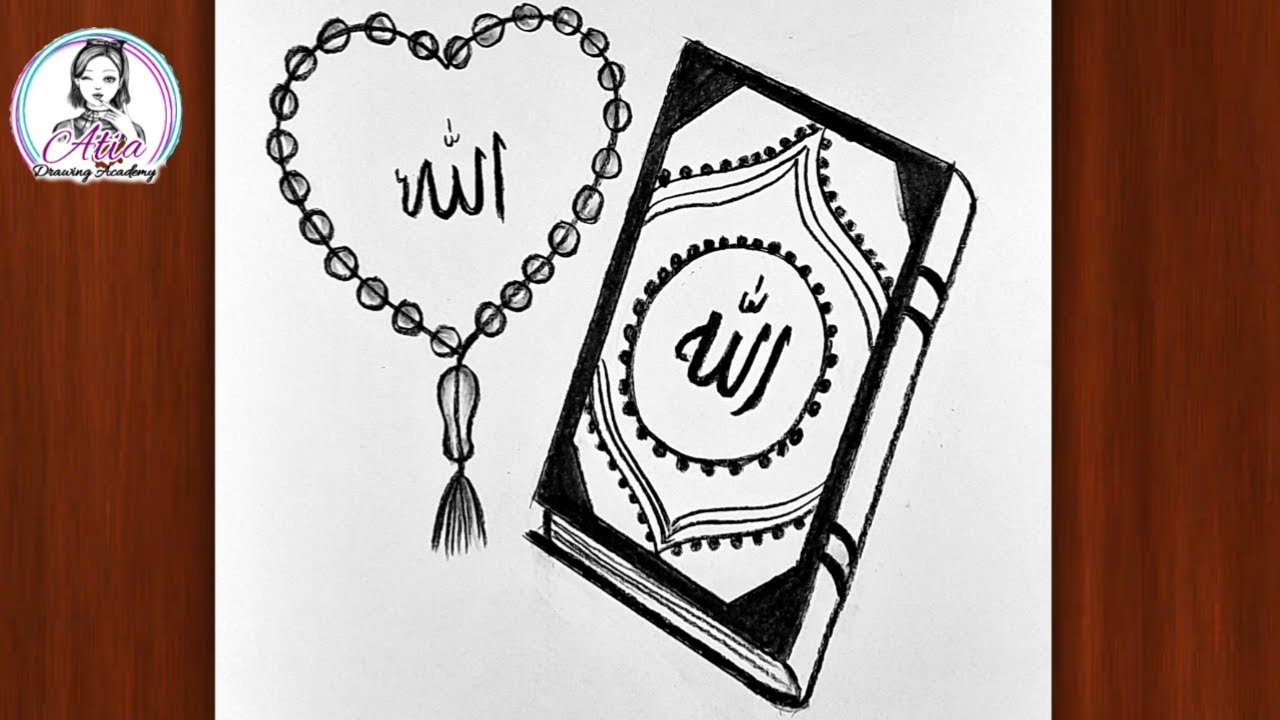 Atia
Drawing Academy
اللّٰه
اللّٰه